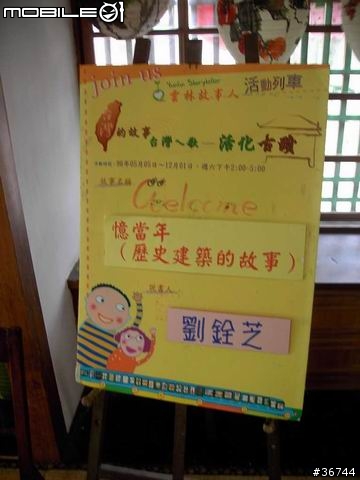 MOBILE01
join us
Yunlin Storyteller
雲林故事人
活動列車
的故事
台灣ㄟ歌—活化古蹟
活動時間：96年05月05日～12月01日，週六下午2:00-5:00
故事名稱
Welcome
憶當年
（歷史建築的故事）
說書人
劉銓芝
#36744